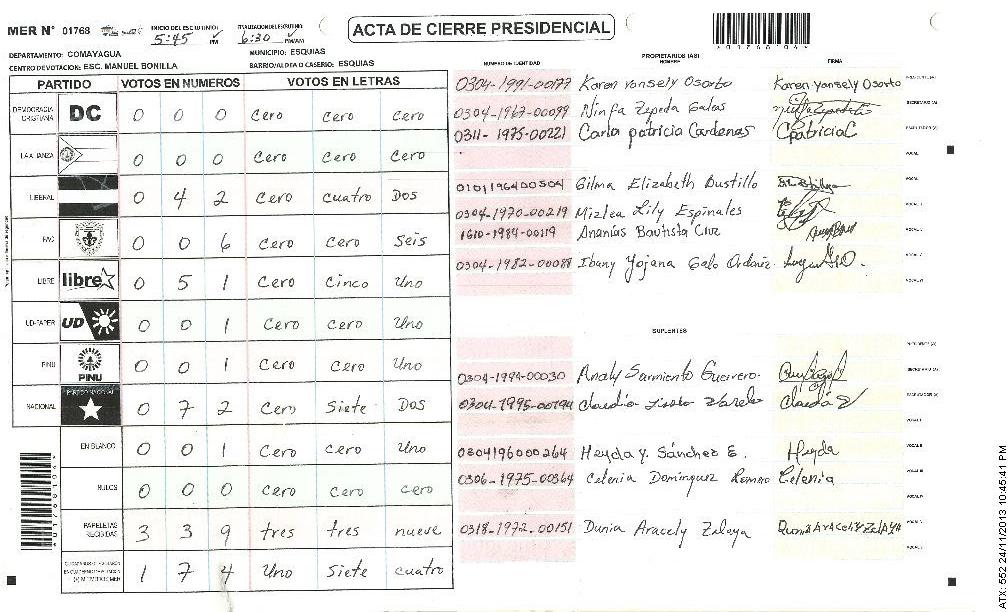 MER Nº 01768
INICIO DEL ESCRUTINIO: 5:45 PM
FINALIZACION ESCRUTINIO: 6:30 PM/AM
ACTA DE CIERRE PRESIDENCIAL
DEPARTAMENTO: COMAYAGUA
MUNICIPIO: ESQUIAS
CENTRO DE VOTACION: ESC. MANUEL BONILLA
BARRIO/ALDEA O CASERIO: ESQUIAS
PARTIDO VOTOS EN NUMEROS VOTOS EN LETRAS
DEMOCRACIA CRISTIANA DC 0 0 0 Cero Cero Cero
LA ALIANZA 0 0 0 Cero Cero Cero
LIBERAL 0 4 2 Cero Cuatro Dos
PAC 0 0 6 Cero Cero Seis
LIBRE libre 0 5 1 Cero Cinco Uno
UD-FAPER UD 0 0 1 Cero Cero Uno
PINU PINU 0 0 1 Cero Cero Uno
NACIONAL PARTIDO NACIONAL 0 7 2 Cero Siete Dos
EN BLANCO 0 0 1 Cero Cero Uno
NULOS 0 0 0 Cero Cero Cero
PAPELETAS RECIBIDAS 3 3 9 tres tres nueve
1 7 4 Uno Siete cuatro
NUMERO DE IDENTIDAD
PROPIETARIOS (AS)
NOMBRE
FIRMA
0304-1991-00177 Karen Yonsely Osorto Karen Yonsely Osorto
0304-1967-00099 Ninfa Zepeda Galas
SECRETARIO (A)
0311-1975-00221 Carla patricia Cardenas CpatriciaC
ESCRUTADOR (A)
VOCAL I
0101196400504 Gilma Elizabeth Bustillo
0304-1970-00219 Mizlea Lily Espinales
1610-1984-00119 Ananías Bautista Cruz
0304-1982-00088 Ibany Yojana Galo Ordoñez
SUPLENTES
PRESIDENTE (A)
0304-1994-00030 Analy Sarmiento Guevero
SECRETARIO (A)
0304-1995-00194
ESCRUTADOR (A)
VOCAL I
0304196000264 Heyda Y. Sánchez E. Heyda
VOCAL II
0306-1975-00364 Celenia Dominguez Romero Celenia
VOCAL III
VOCAL IV
0318-1972-00151 Dunia Aracely Zelaya Dunia Aracely Zelaya
VOCAL V
ATX: 552 24/11/2013 10:45:41 PM